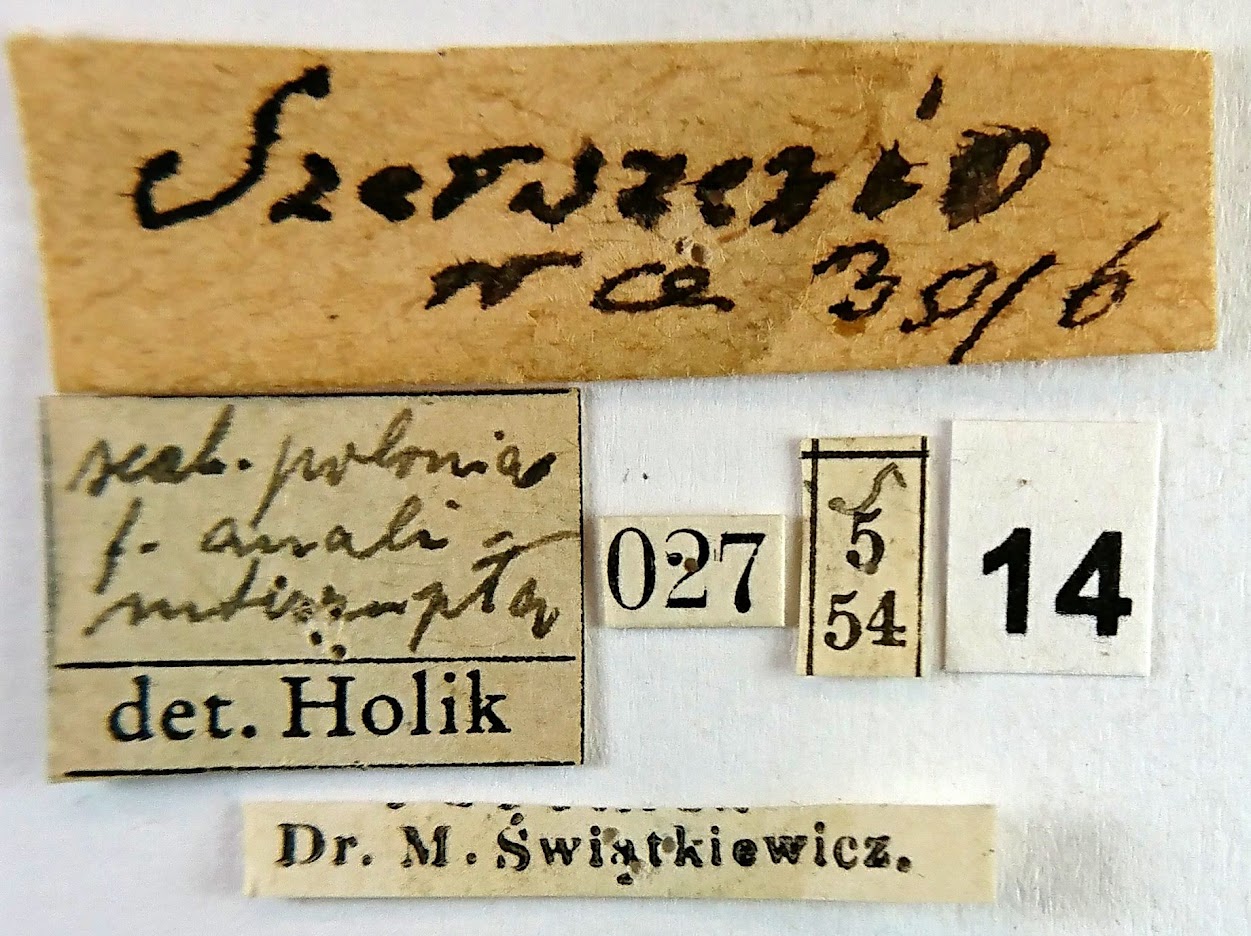 Szerszenió
wce 39/6
polonia
f. anali-
interrupta
det. Holik
027
5
54
14
Dr. M. Świątkiewicz.